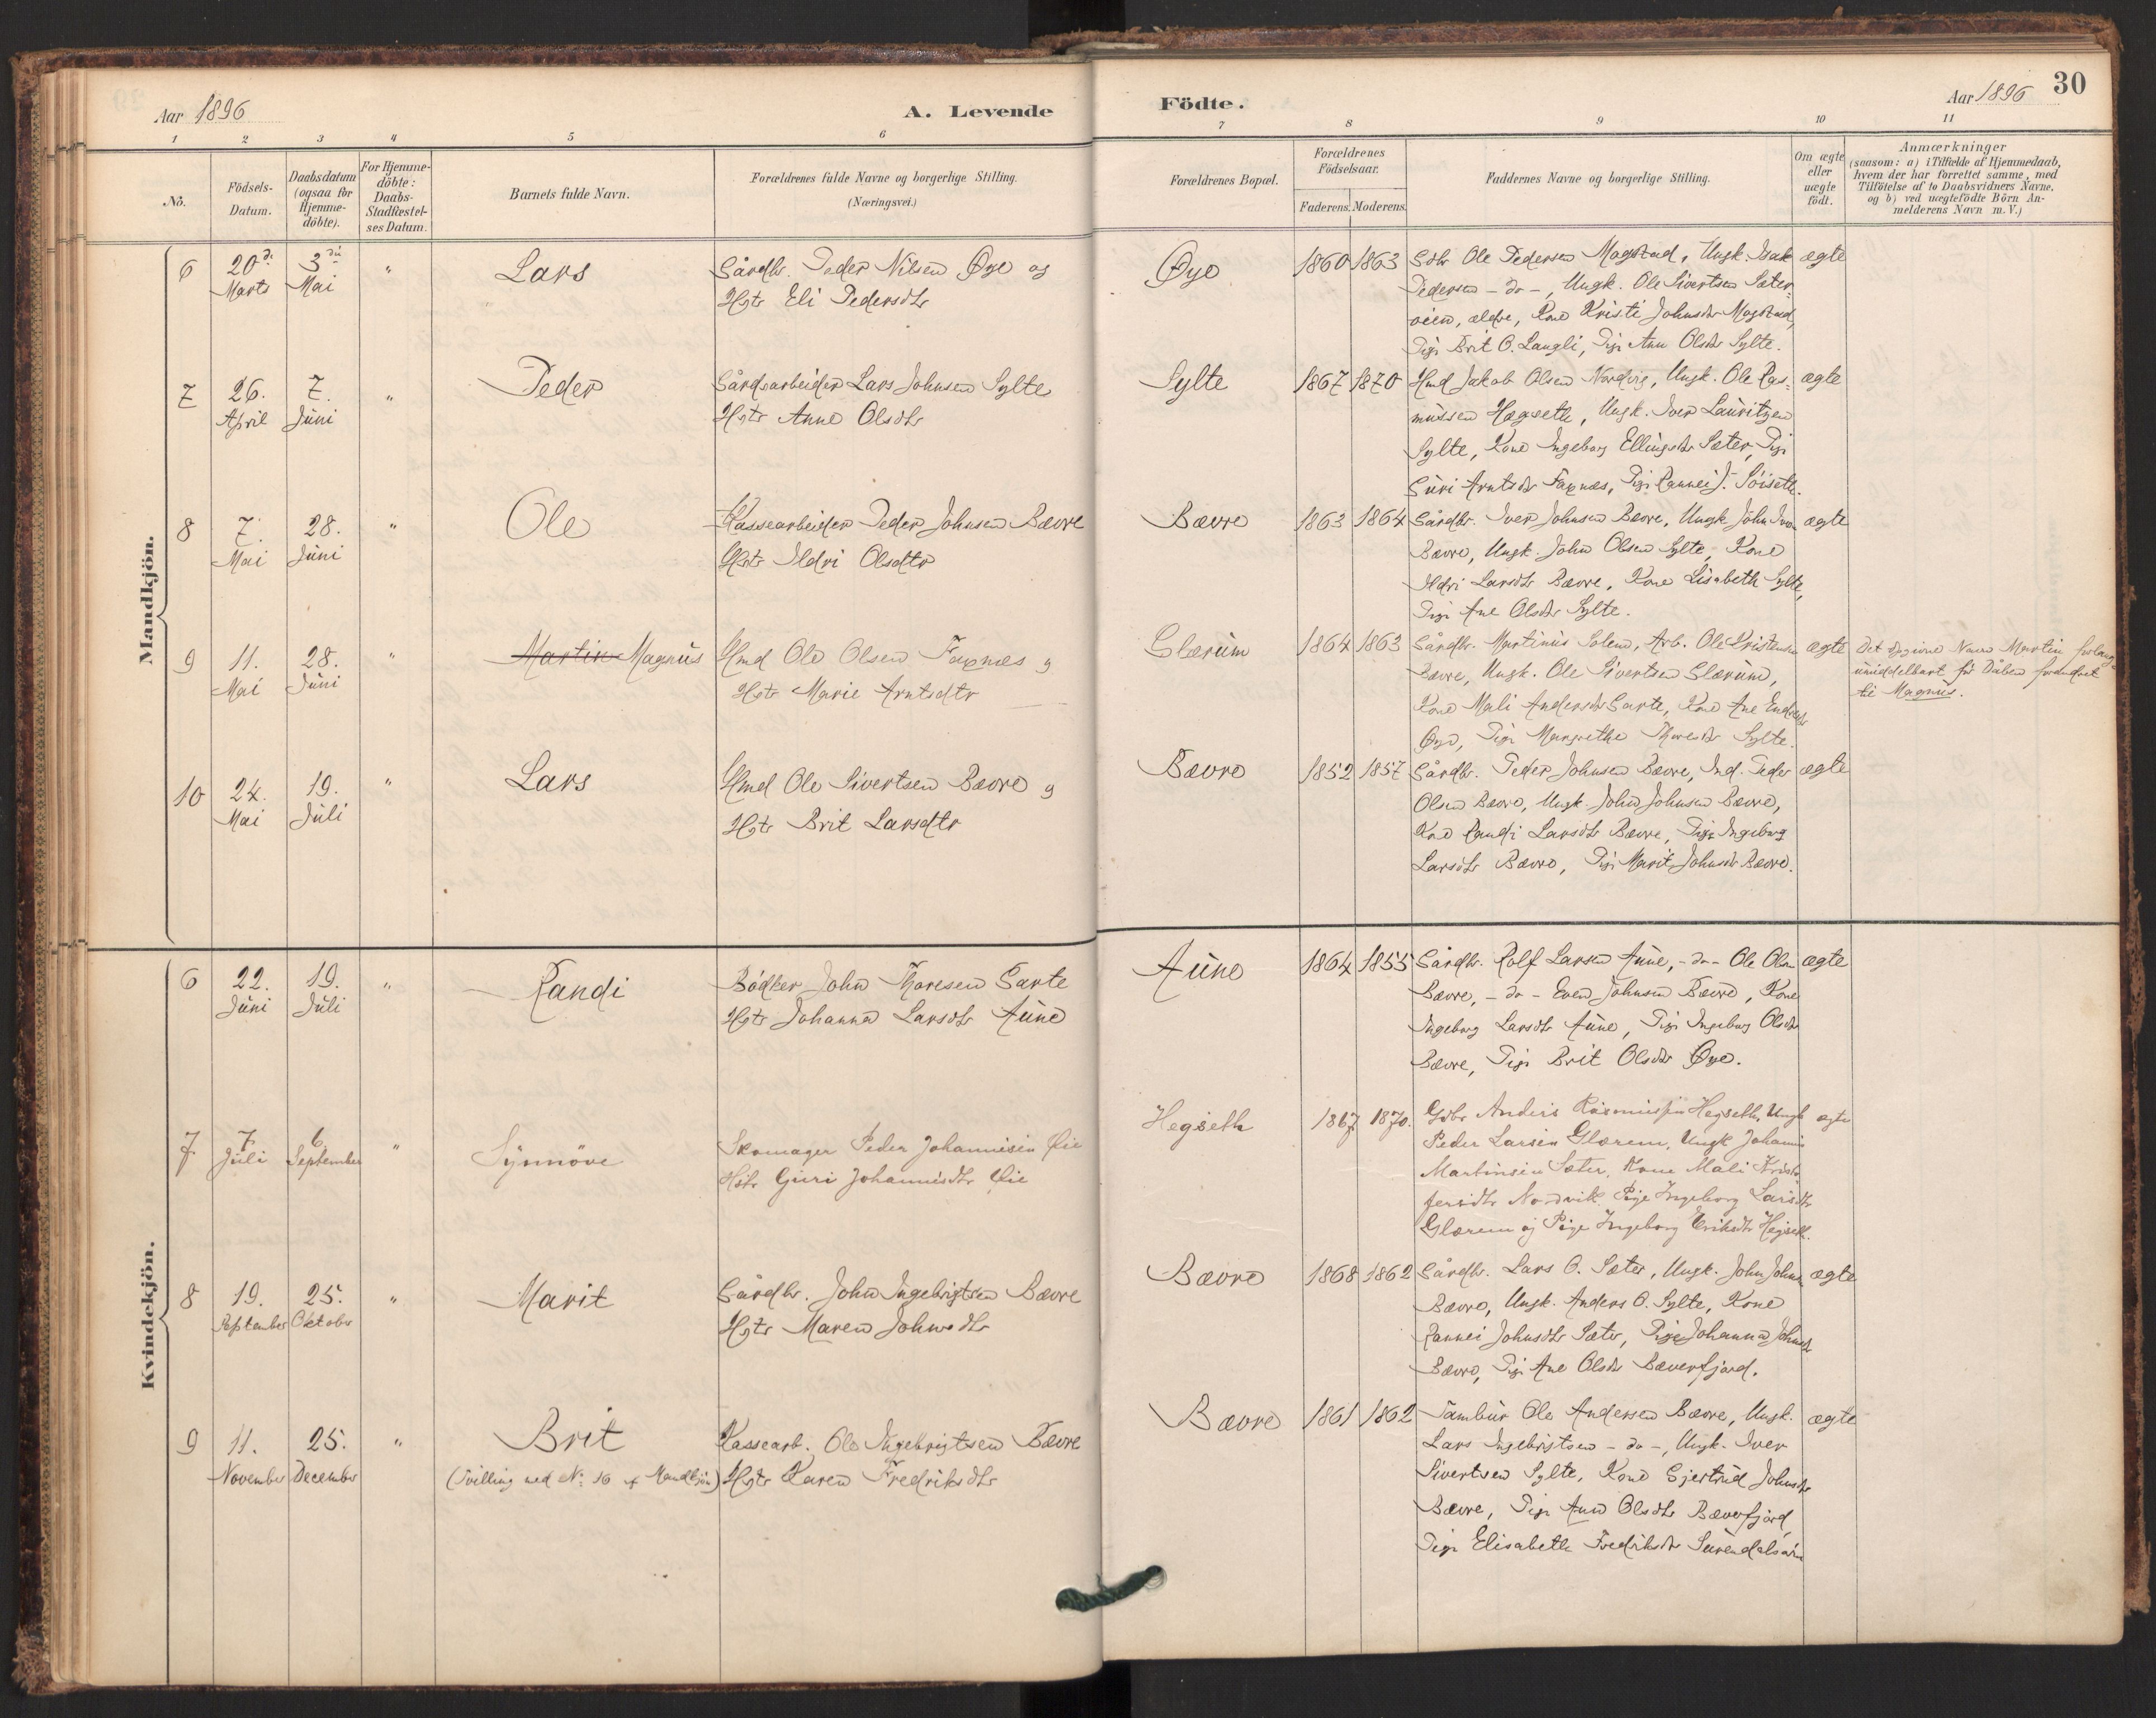 Aar 1896
A. Levende
Födte.
Aar 1896
30
1 2 3 4 5 6 7 8 9 10 11
No.
Födsels-
Datum.
Daabsdatum
(ogsaa for
Hjemme-
döbte).
For Hjemme-
döbte:
Daabs-
Stadfæstel-
ses Datum.
Barnets fulde Navn.
Forældrenes fulde Navne og borgerlige Stilling.
(Næringsvei.)
Forældrenes Bopæl.
Forældrenes
Födselsaar.
Faderens. Moderens.
Faddernes Navne og borgerlige Stilling.
Om ægte
eller
uægte
födt.
Anmærkninger
(saasom: a) i Tilfælde af Hjemmedaab,
hvem der har forrettet samme, med
Tilföielse af to Daabsvidners Navne,
og b) ved uægtefödte Börn An-
melderens Navn m. V.)
Mandkjön.
6
20de
Marts
3die
Mai
"
Lars
Gårdbr. Peder Nilsen Øye og
Hstr Eli Pedersdtr
Øye
1860 1863
Gdbr Ole Pedersen Magstad, Ungk. Isak
Pedersen - do -, Ungk. Ole Sivertsen Sæter-
øien, ældre, Kone Kristi Johnsdtr Magstad,
Pige Brit O. Langli, Pige Ane Olsdtr Sylte.
ægte
7
26.
April
7.
Juni
"
Peder
Gårdsarbeider Lars Johnsen Sylte
Hstr Anne Olsdtr
Sylte
1867 1870
Hmd Jakob Olsen Nordvig, Ungk. Ole Ras-
mussen Hægseth, Ungk. Iver Lauritzen
Sylte, Kone Ingeborg Ellingsdtr Sæter, Pige
Guri Arntsdtr Faxnæs, Pige Rannei J. Söiseth.
ægte
8
7.
Mai
28.
Juni
"
Ole
Kassearbeider Peder Johnsen Bævre
Hstr Ildri Olsdtr
Bævre
1863 1864
Gårdbr. Iver Johnsen Bævre, Ungk John Ivers.
Bævre, Ungk. John Olsen Sylte, Kone
Ildri Larsdtr Bævre, Kone Lisabeth Sylte,
Pige Ane Olsdtr Sylte.
ægte
9
11.
Mai
28.
Juni
"
Martin Magnus
Hmd Ole Olsen Faxnæs g
Hstr Marie Arntsdtr
Glærum
1864 1863
Gårdbr. Martinus Solem, Arb. Ole Kristensen
Bævre, Ungk. Ole Sivertsen Glærum,
Kone Mali Andersdtr Garte, Kone Ane Endresdtr
Øye, Pige Margrethe Thoresdtr Sylte.
ægte
Det opgivne Navn Martin forlang.
umiddelbart för Dåben forandret
til Magnus.
10
24.
Mai
19.
Juli
"
Lars
Hmd Ole Sivertsen Bævre g
Hstr Brit Larsdtr
Bævre
1852 1857
Gårdbr. Peder Johnsen Bævre, Ind. Peder
Olsen Bævre, Ungk. John Johnsen Bævre,
Kone Randi Larsdtr Bævre, Pige Ingeborg
Larsdtr Bævre, Pige Marit Johnsdtr Bævre.
ægte
Kvindekjön.
6
22.
Juni
19.
Juli
"
Randi
Bödker John Thoresen Garte
Hstr Johanna Larsdtr Aune
Aune
1864 1855
Gårdbr. Rolf Larsen Aune, - do - Ole Olsen
Bævre, - do - Even Johnsen Bævre, Kone
Ingeborg Larsdtr Aune, Pige Ingeborg Olsdtr
Bævre, Pige Brit Olsdtr Øye.
ægte
7
7.
Juli
6.
September
"
Synnöve
Skomager Peder Johannesen Øie
Hstr Guri Johannesdtr Øie
Hegseth
1867 1870.
Gdbr Anders Rasmussen Hegseth, Ungk
Peder Larsen Glærem, Ungk Johannes
Martinsen Sæter, Kone Mali Kristo-
fersdtr Nordvik Pige Ingeborg Larsdtr
Glærem og Pige Ingeborg Eriksdtr Hegseth.
ægte
8
19.
September
25.
Oktober
"
Marit
Gårdbr. John Ingebrigtsen Bævre
Hstr Maren Johnsdtr
Bævre
1868 1862
Gårdbr. Lars O. Sæter, Ungk. John Johnsen
Bævre, Ungk. Anders O. Sylte, Kone
Rannei Johnsdtr Sæter, Pige Johanna Johnsdtr
Bævre, Pige Ane Olsdtr Bæverfjord.
ægte
9
11.
November
25.
December
"
Brit
(Tvilling med No: 16 af Mandkjön)
Kassearb. Ole Ingebrigtsen Bævre
Hstr Karen Fredriksdtr
Bævre
1861 1862
Tambur Ole Andersen Bævre, Ungk.
Lars Ingebrigtsen - do -, Ungk. Iver
Sivertsen Sylte, Kone Gjertrud Johnsdtr
Bævre, Pige Ane Olsdtr Bæverfjord
Pige Elisabeth Fredriksdtr Surendalsøren
ægte